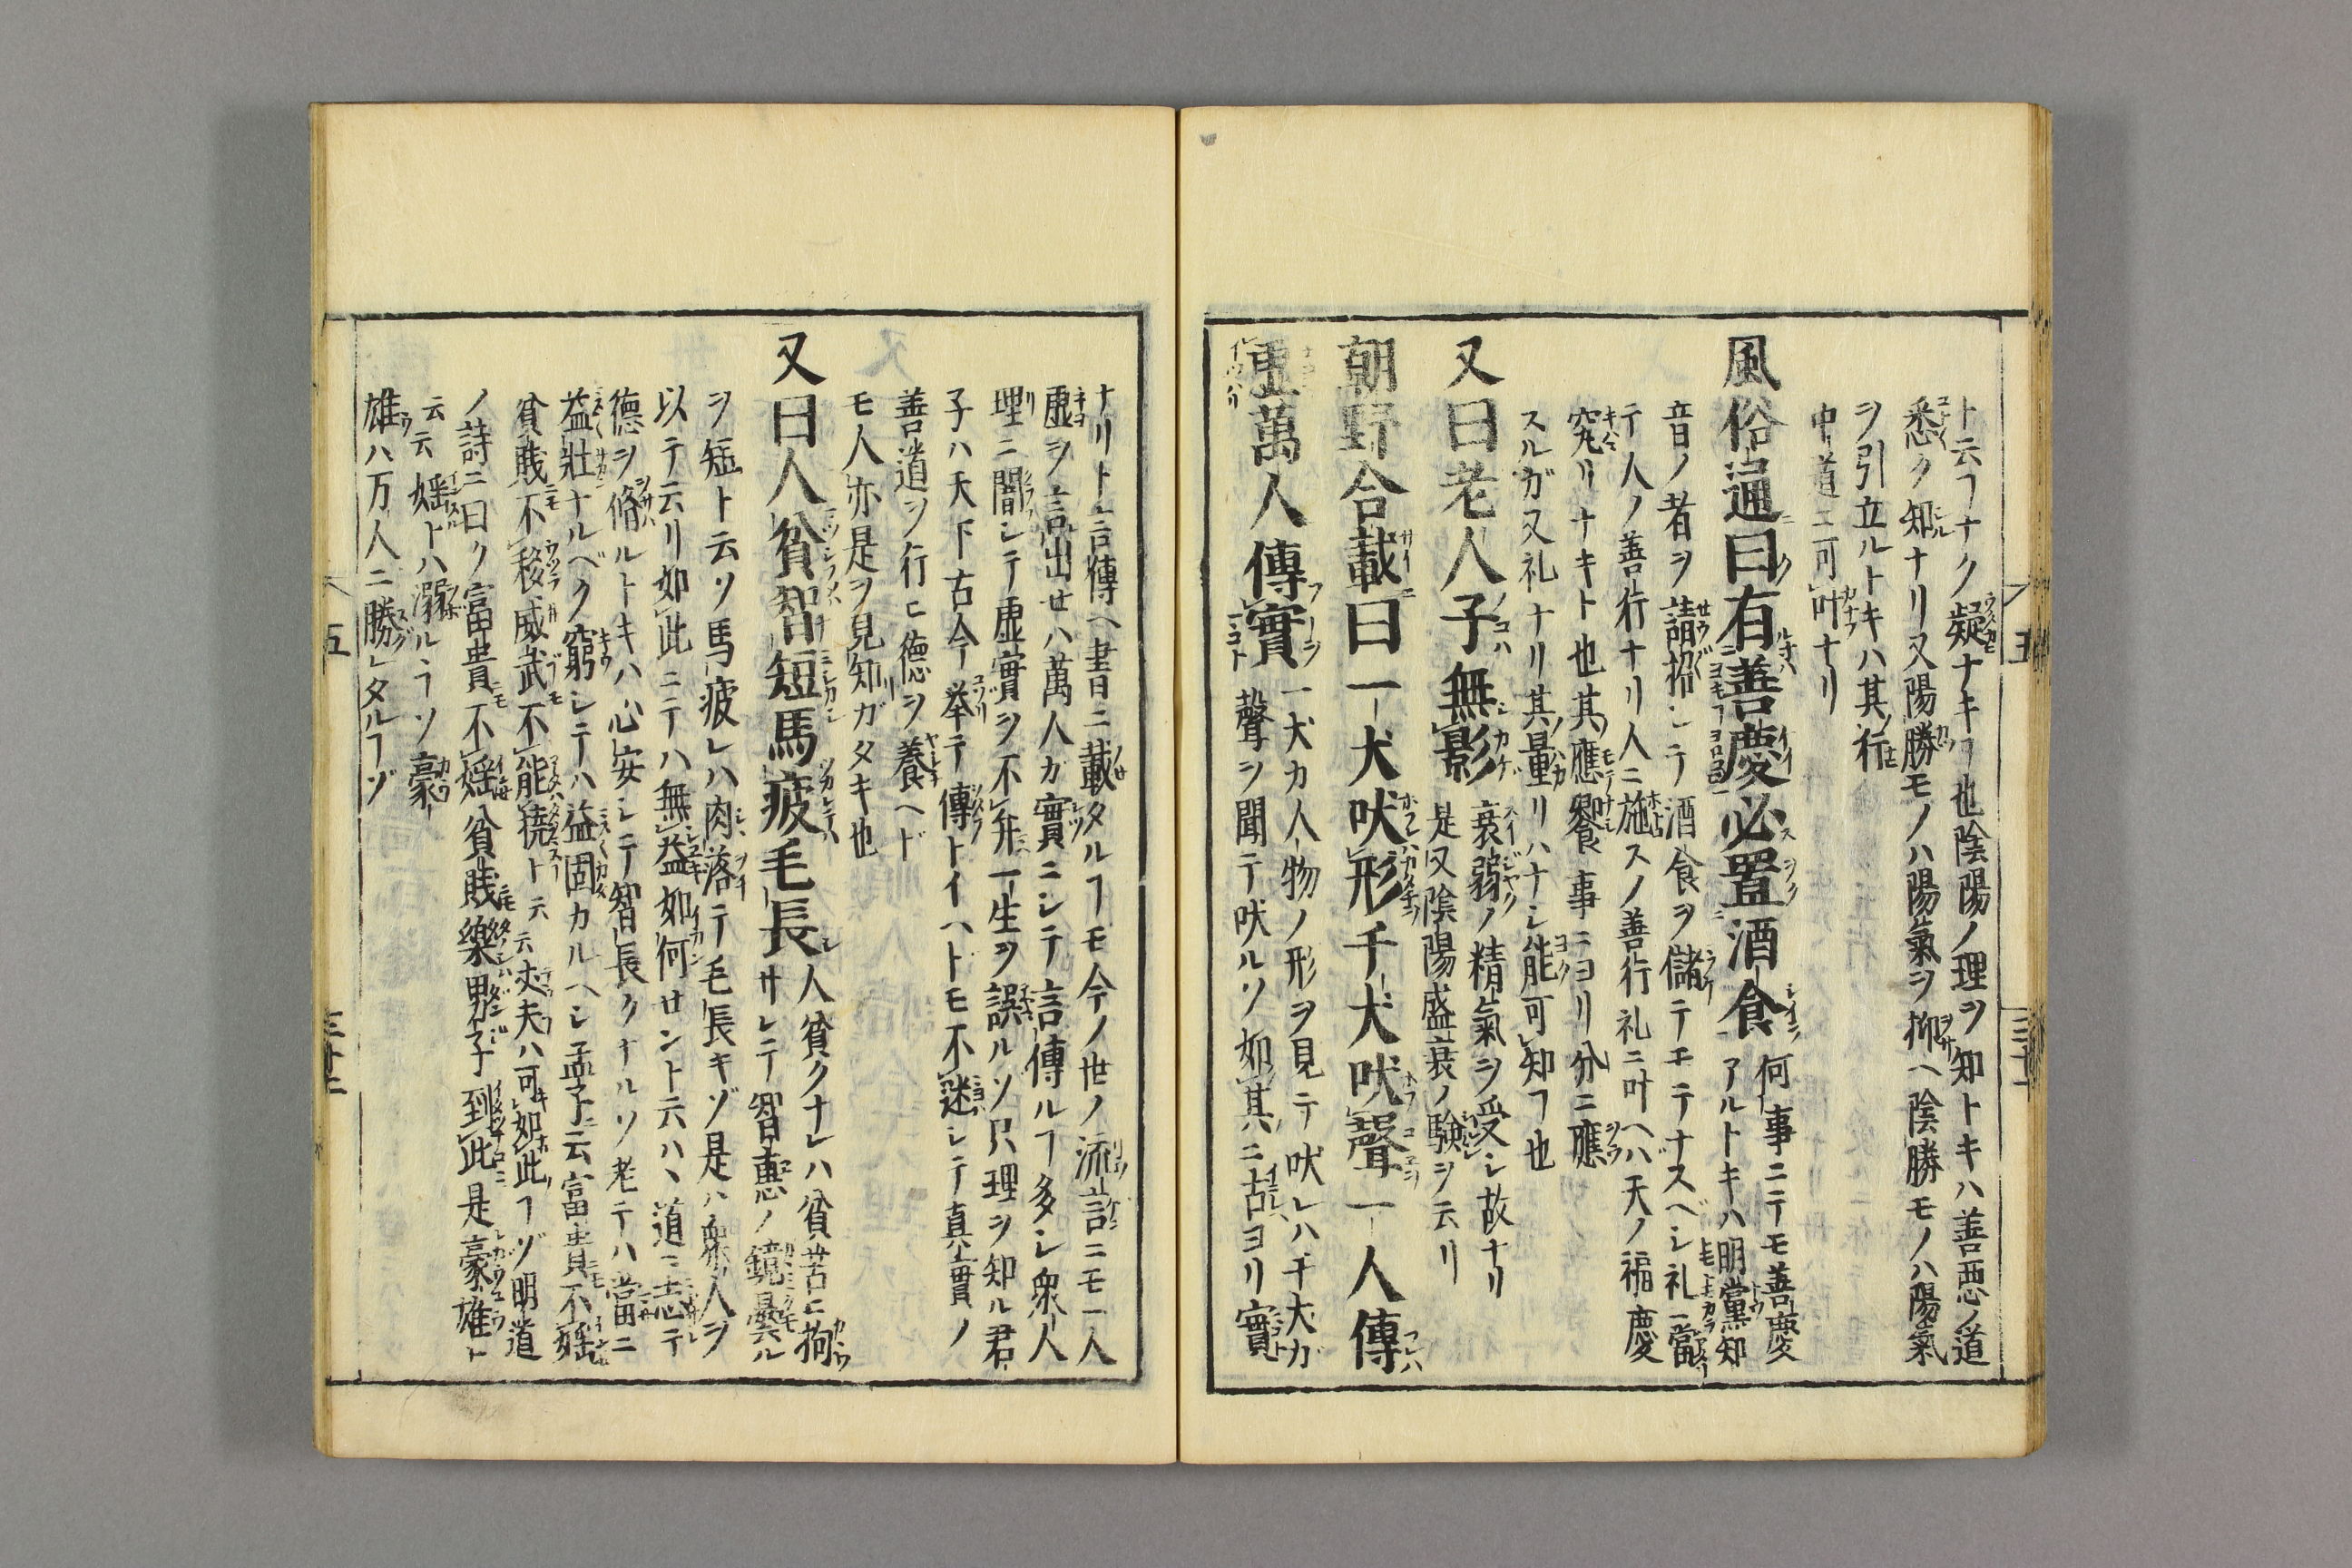 ト云フナク疑ナキヿ也陰陽ノ理ヲ知トキハ善惡ノ道
悉ク知ナリ又陽勝モノハ陽氣ヲ抑ヘ陰勝モノハ陽氣
ヲ引立ルトキハ其行
中道ニ可叶ナリ
風俗通曰有善慶必置酒食何事ニテモ善慶
アルトキハ明黨知
音ノ者ヲ請招シテ酒食ヲ儲テモテナスベシ礼當
テ人ノ善行ナリ人ニ施スノ善行礼ニ叶ヘハ天ノ福慶
究リナキト也其應餐事ニヨリ分ニ應
スルガ又礼ナリ其量リハナシ能可知フ也
又曰老人子無影衰弱ノ精氣ヲ受シ故ナリ
是又陰陽盛衰ノ驗ヲ云リ
朝野合載曰一犬吠形千犬吠聲一人傳
虛萬人傳實一犬カ人物ノ形ヲ見テ吠レハ千犬ガ
聲ヲ聞テ吠ルソ如其ニ古ヨリ實
ナリト言傳ヘ書ニ載タルヿモ今ノ世ノ流言ニモ一人
虛ヲ言出セハ萬人ガ實ニシテ言傳ルヿ多シ衆人
理ニ闇シテ虛實ヲ不弁一生ヲ誤ルソ只理ヲ知ル君
子ハ天下古今挙テ傳トイヘトモ不迷シテ真實ノ
善道ヲ行ヒ德ヲ養ヘド
モ人亦是ヲ見知ガタキ也
又曰人貧智短馬疲毛長人貧クナレハ貧苦ニ拘
サレテ智惠ノ鏡曇ル
ヲ短ト云ソ馬疲レハ肉落テ毛長キゾ是ハ衆人ヲ
以テ云リ如此ニテハ無益如何セント云ハヽ道ニ志テ
德ヲ脩ルトキハ心安シテ智長クナルソ老テハ當ニ
益壯ナルベク窮シテハ益固カルヘシ孟子云富貴不婬
貧賎不移威武不能撓ト云云丈夫ハ可如此ヿゾ明道
ノ詩ニ曰ク富貴不婬貧賎樂男子到此是豪雄ト
云云婬トハ溺ルヽヲソ豪
雄ハ万人ニ勝レタルヿゾ
五
三十二